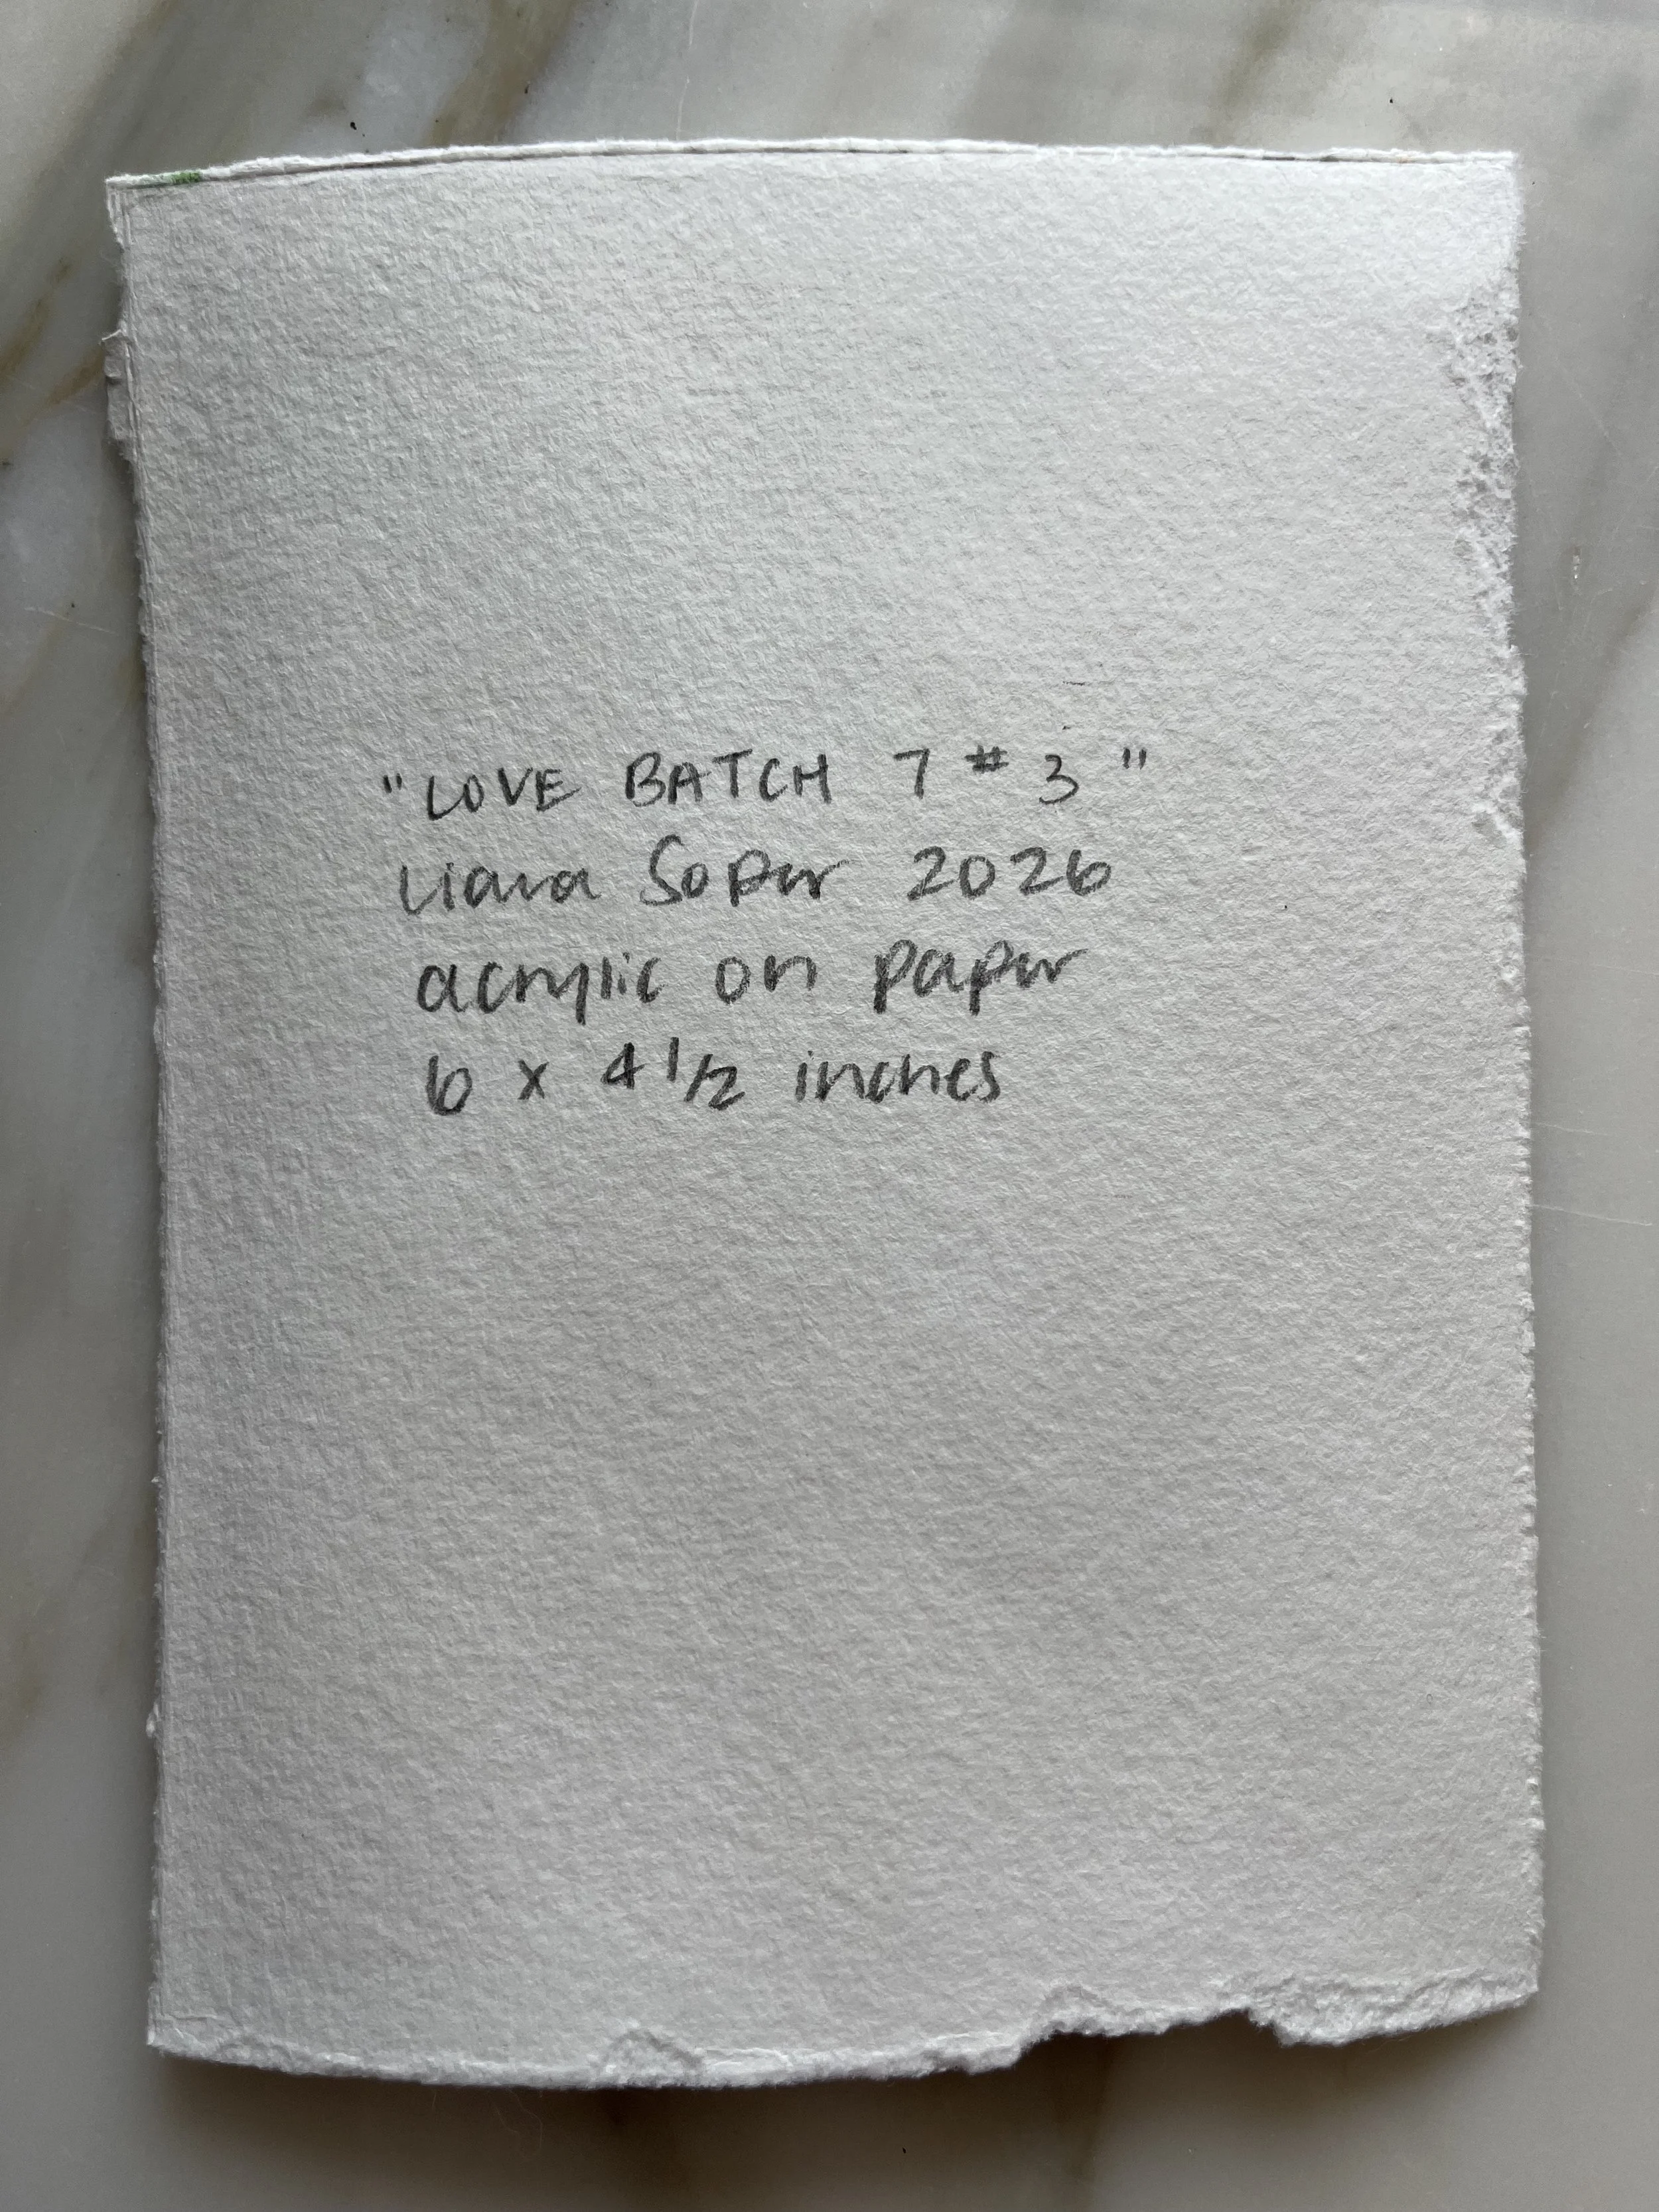 "LOVE BATCH 7 # 3"
Liara Soper 2026
acrylic on paper
6 x 4 1/2 inches